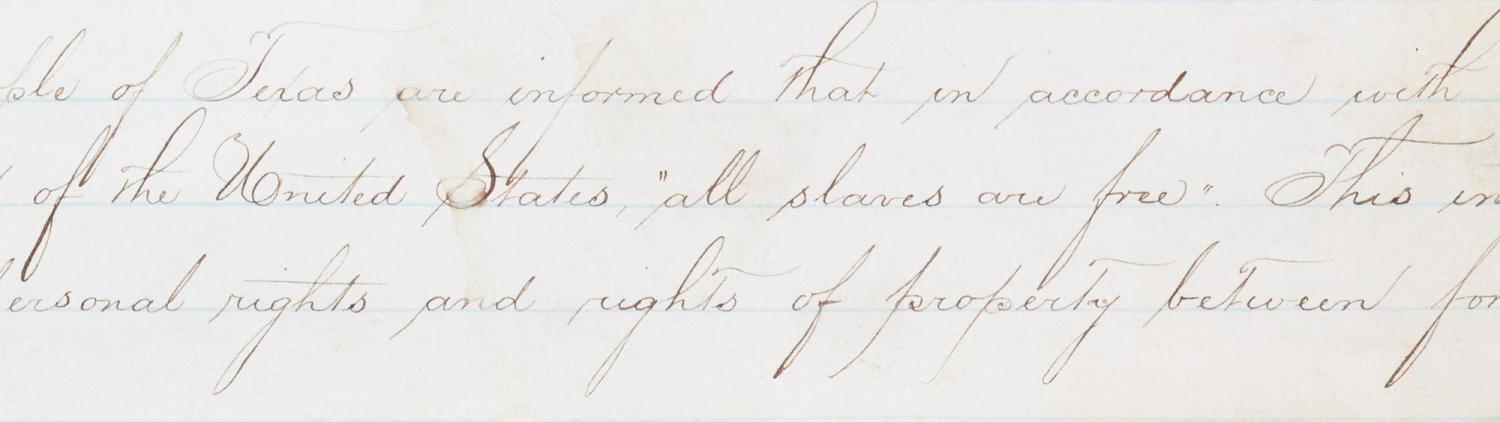 ple of Texas are informed that in accordance with
of the United States, "all slaves are free". This in
ersonal rights and rights of property between for